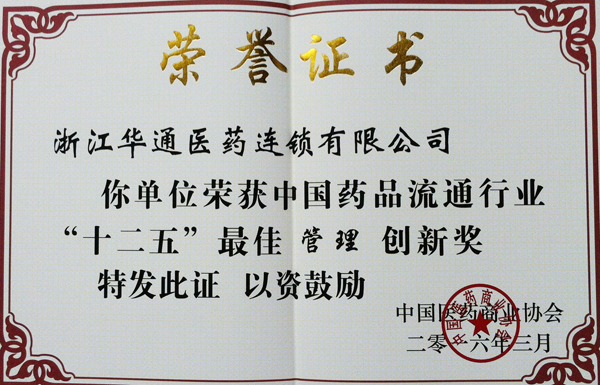 荣誉证书
浙江华通医药连锁有限公司
你单位荣获中国药品流通行业
“十二五”最佳 管理 创新奖
特发此证 以资鼓励
中国医药商业协会
二零一六年三月
中国医药商业协会